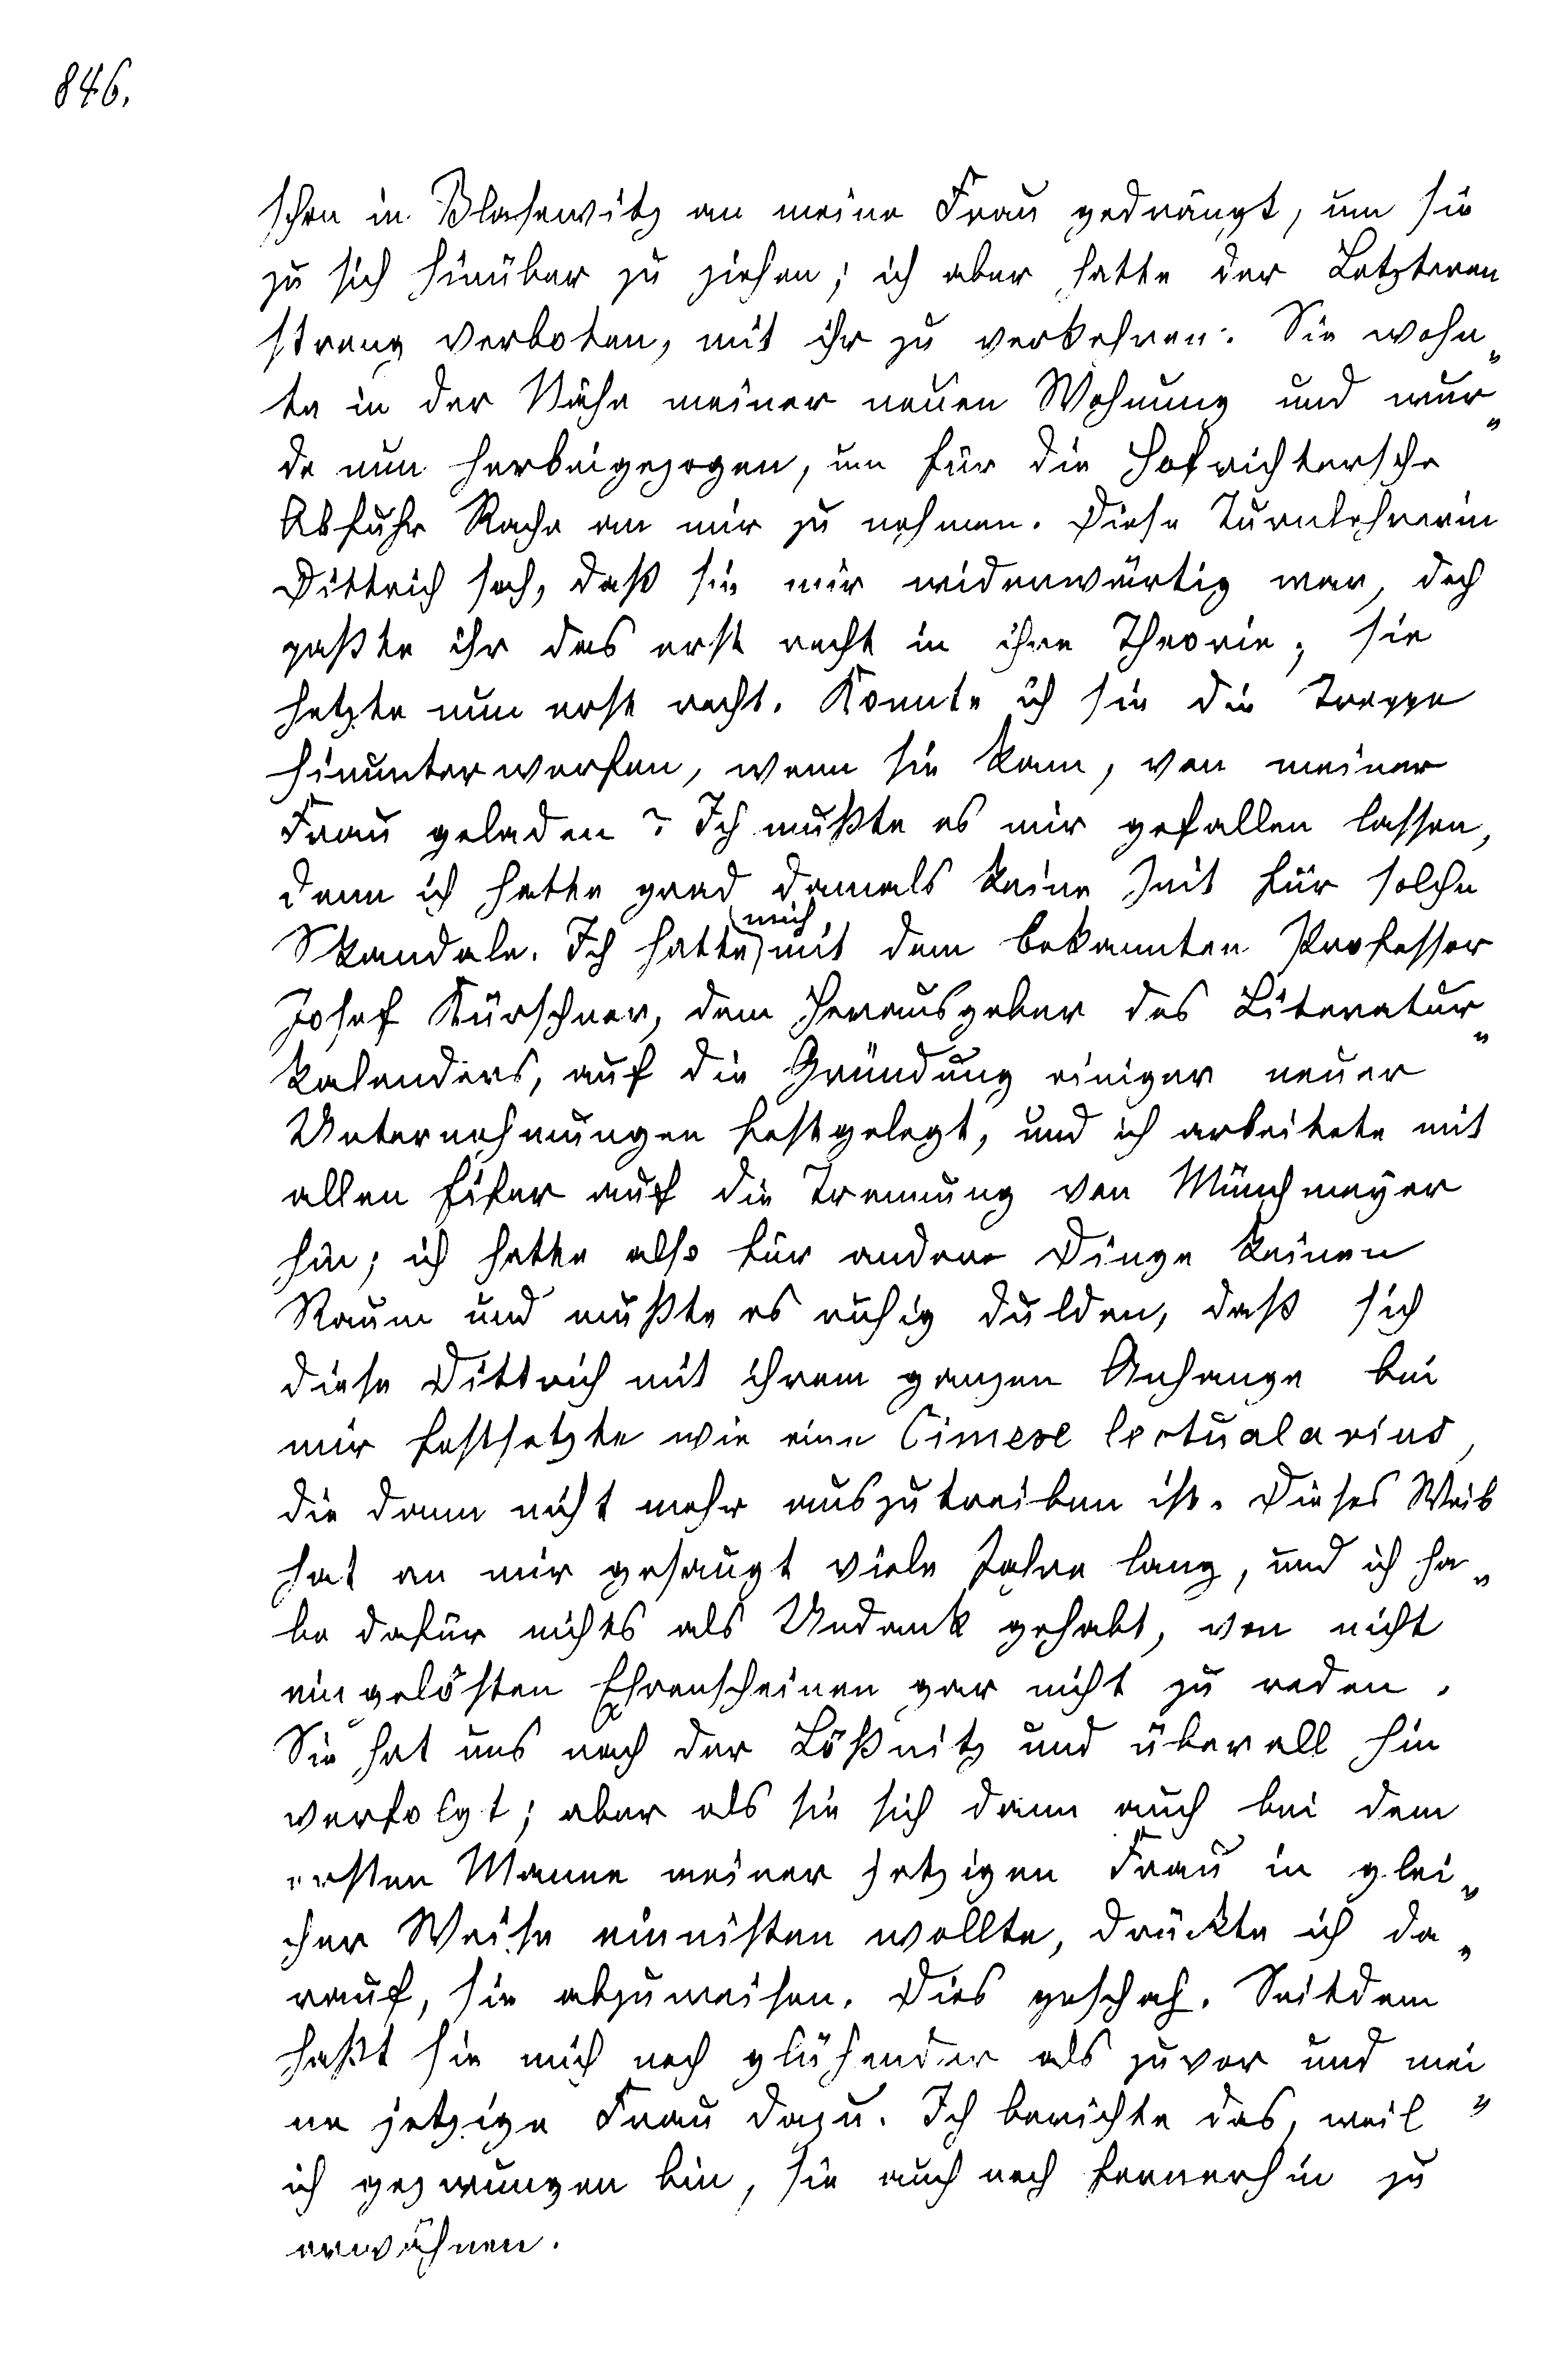 846.
schon in Blasewitz an meine Frau gedrängt, um sie
zu sich hinüber zu ziehen; ich aber hatte der Letzteren
streng verboten, mit ihr zu verkehren. Sie wohn„
te in der Nähe meiner neuen Wohnung und wur„
de nun herbeigezogen, um für die Hofrichtersche
Abfuhr Rache an mir zu nehmen. Diese Turnlehrerin
Dittrich sah, daß sie mir widerwärtig war, doch
paßte ihr das erst recht in ihre Theorie; sie
hetzte nun erst recht. Konnte ich sie die Treppe
hinunterwerfen, wenn sie kam, von meiner
Frau geladen? Ich mußte es mir gefallen lassen,
denn ich hatte grad damals keine Zeit für solche
Skandale. Ich hatte mich mit dem bekannten Professor
Josef Kürschner, dem Herausgeber des Literatur„
kalenders, auf die Gründung einiger neuer
Unternehmungen festgelegt, und ich arbeitete mit
allen Eifer auf die Trennung von Münchmeyer
hin; ich hatte also für andere Dinge keinen
Raum und mußte es ruhig dulden, daß sich
diese Dittrich mit ihrem ganzen Anhange bei
mir festsetzte wie eine Cimexe lectualarius,
die dann nicht mehr auszutreiben ist. Dieses Weib
hat an mir gesaugt viele Jahre lang, und ich ha„
be dafür nichts als Undank gehabt, von nicht
eingelösten Ehrenscheinen gar nicht zu reden.
Sie hat uns nach der Lößnitz und überall hin
verfolgt; aber als sie sich dann auch bei dem
ersten Manne meiner jetzigen Frau in glei„
cher Weise einnisten wollte, drückte ich da„
rauf, sie abzuweisen. Dies geschah. Seitdem
haßt sie mich noch glühender als zuvor und mei„
ne jetzige Frau dazu. Ich berichte das, weil
ich gezwungen bin, sie auch noch fernerhin zu
erwähnen.